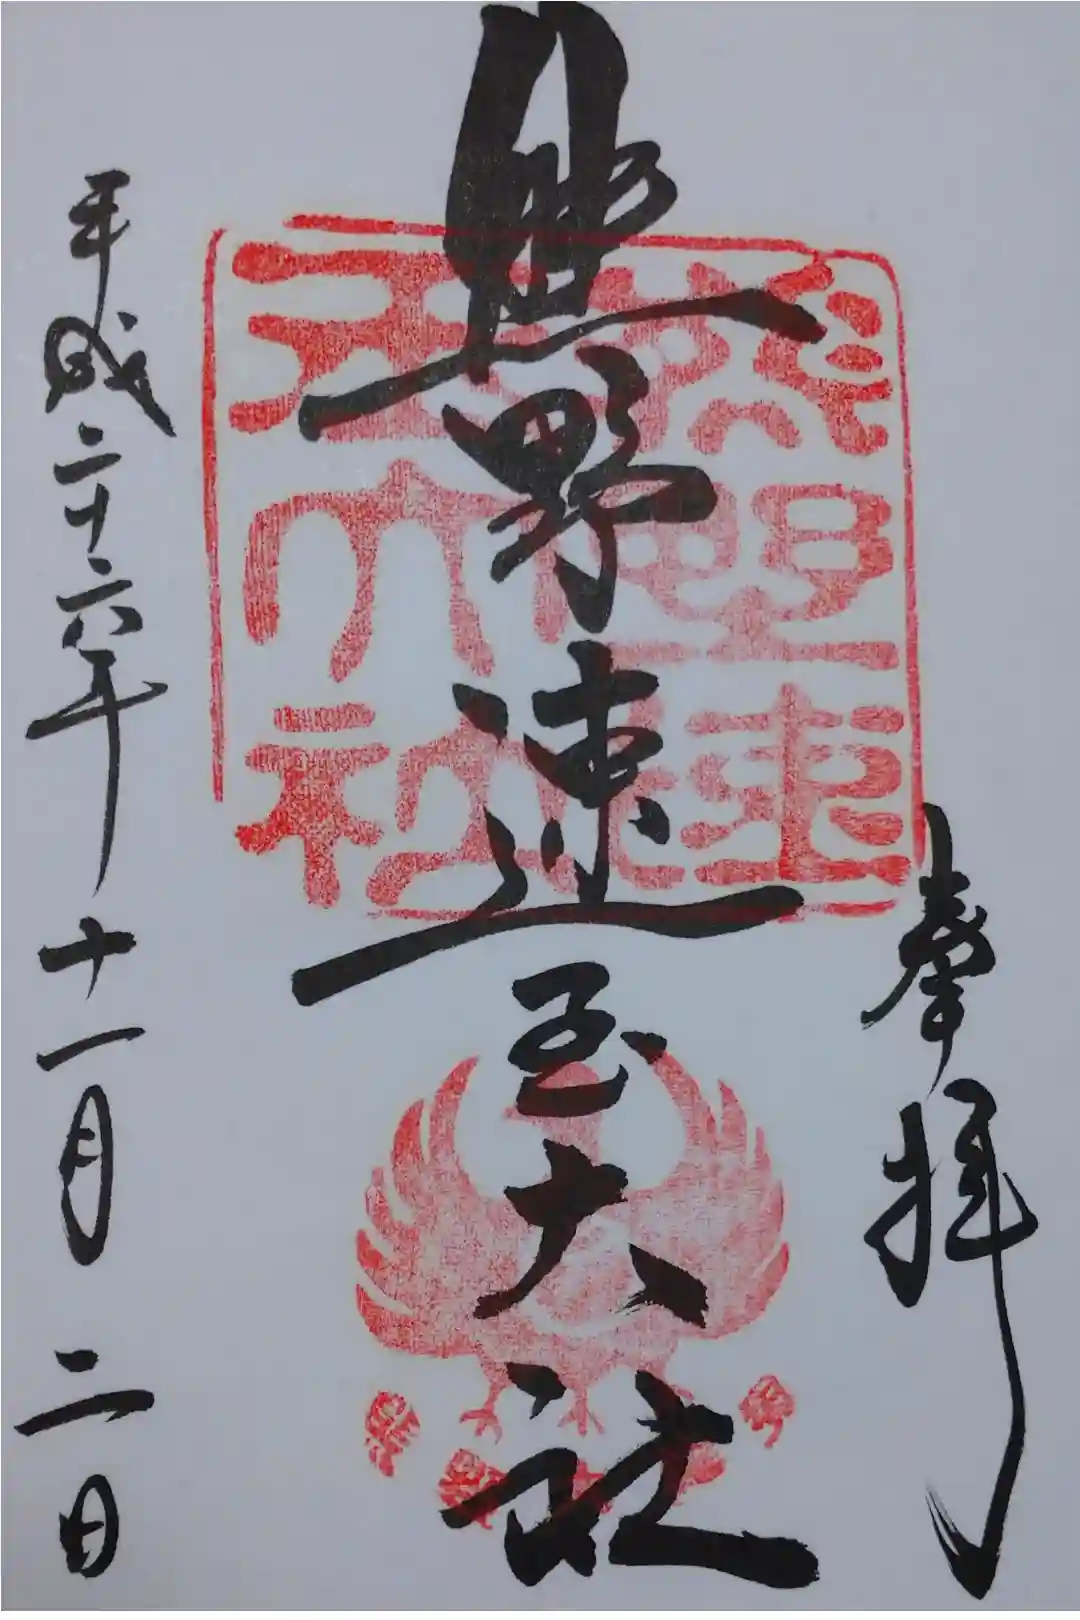 奉拝
熊野速玉大社
平成二十六年十一月二日
熊野速
玉大社